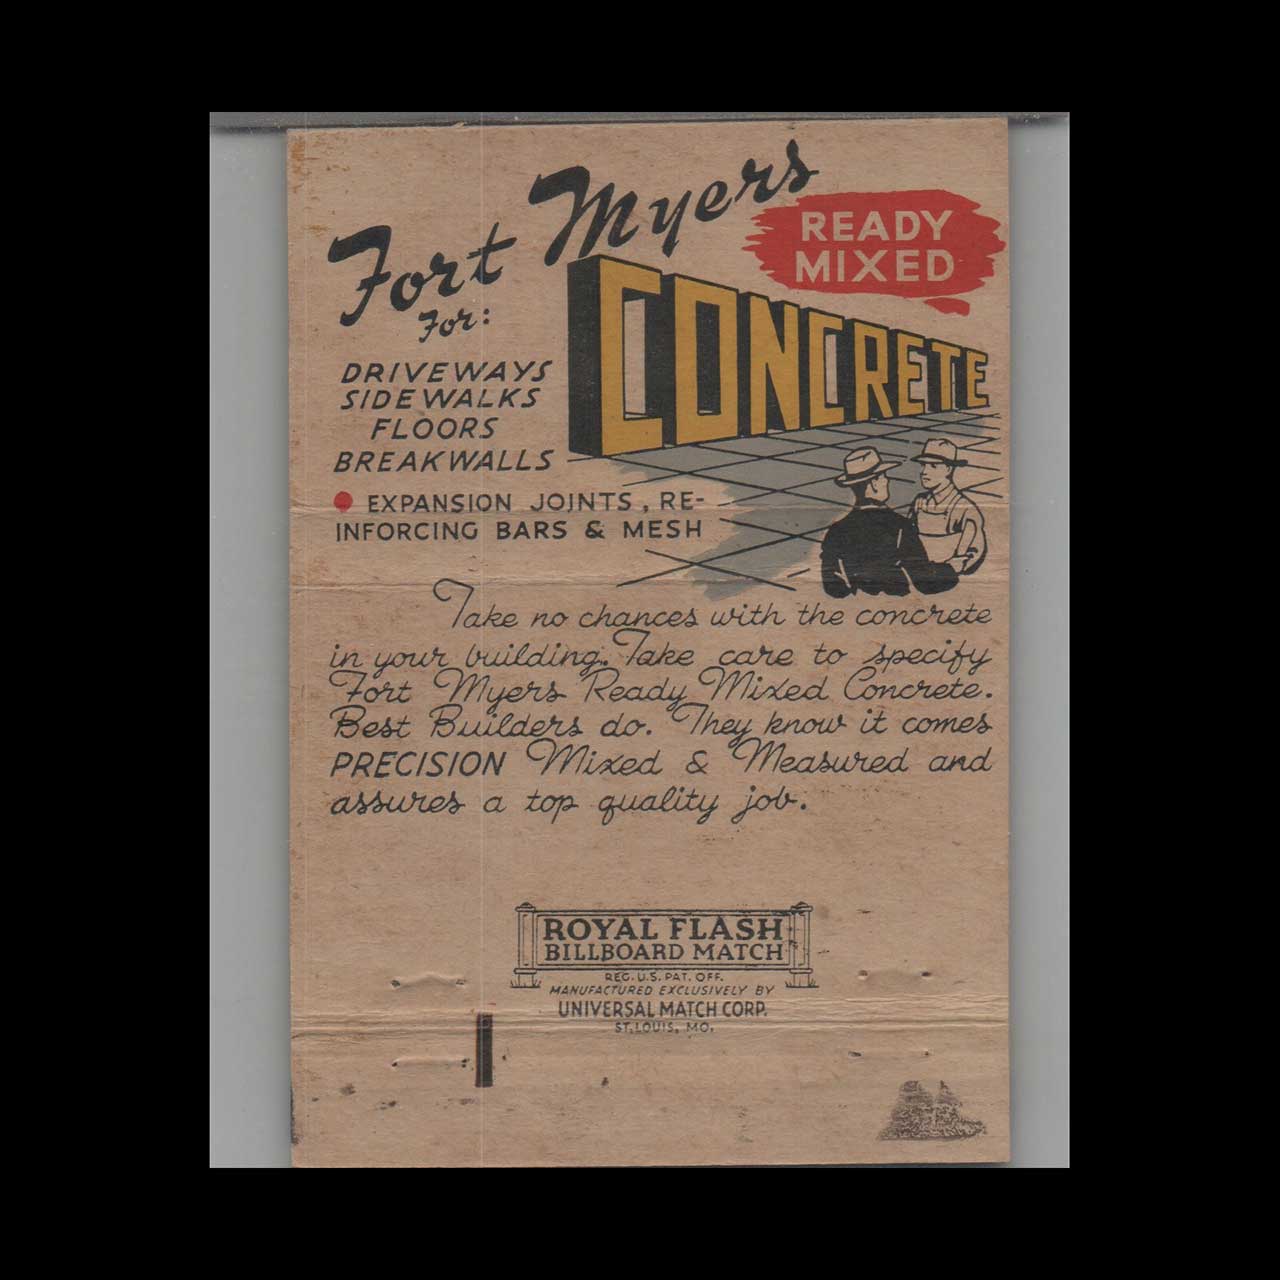 Fort Myers
READY
MIXED
CONCRETE
For:
DRIVEWAYS
SIDEWALKS
FLOORS
BREAKWALLS
EXPANSION JOINTS, RE-
INFORCING BARS & MESH
Take no chances with the concrete
in your building. Take care to specify
Fort Myers Ready Mixed Concrete.
Best Builders do. They know it comes
PRECISION Mixed & Measured and
assures a top quality job.
ROYAL FLASH
BILLBOARD MATCH
REG. U.S. PAT. OFF.
MANUFACTURED EXCLUSIVELY BY
UNIVERSAL MATCH CORP.
ST. LOUIS, MO.